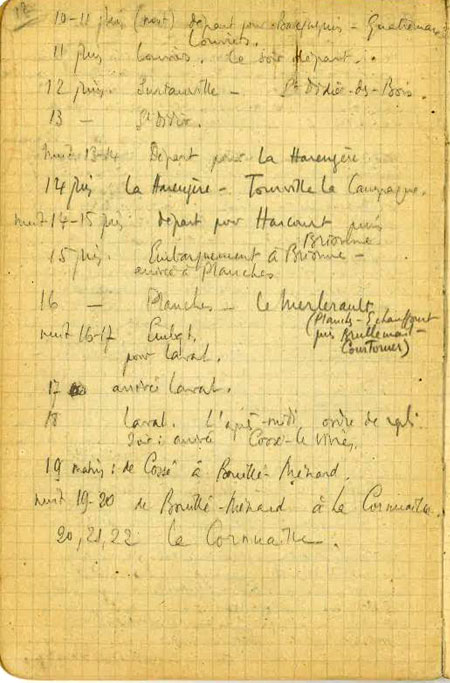 12
10-11 juin (nuit) départ pour - Quatremare
Louviers.
11 juin Louviers. Le soir départ.
12 juin. Surtauville - St Didier-des-Bois.
13 - St Didier.
nuit 13-14 Départ pour La Harengère
14 juin La Harengère - Tourville La Campagne.
nuit 14-15 juin départ pour Harcourt puis
Brionne
15 juin. Embarquement à Brionne -
arrivée à Planches
16 - Planches - Le Merlerault
(Planches-Echauffour
puis Brullemail-
Courtomer)
nuit 16-17 Embqt.
pour Laval.
17 arrivée Laval.
18 Laval. L'après-midi ordre de repli
Soir : arrivée Cossé-le-Vivien.
19 matin : de Cossé à Bouillé-Ménard.
nuit 19-20 de Bouillé-Ménard à La Cornuaille.
20, 21, 22 La Cornuaille.